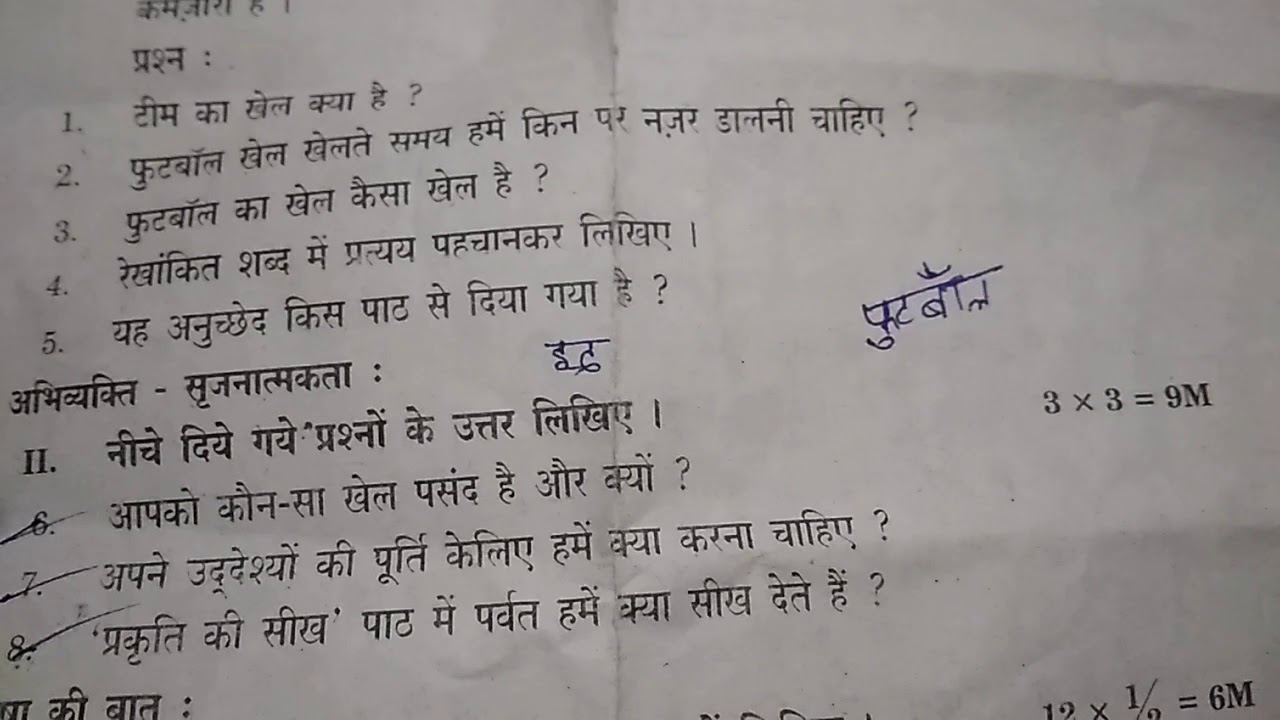 कमज़ोरी है ।
प्रश्न :
1. टीम का खेल क्या है ?
2. फुटबॉल खेल खेलते समय हमें किन पर नज़र डालनी चाहिए ?
3. फुटबॉल का खेल कैसा खेल है ?
4. रेखांकित शब्द में प्रत्यय पहचानकर लिखिए ।
5. यह अनुच्छेद किस पाठ से दिया गया है ?
फुटबॉल
अभिव्यक्ति - सृजनात्मकता :
3 × 3 = 9M
II. नीचे दिये गये प्रश्नों के उत्तर लिखिए ।
6. आपको कौन-सा खेल पसंद है और क्यों ?
7. अपने उद्देश्यों की पूर्ति केलिए हमें क्या करना चाहिए ?
8. 'प्रकृति की सीख' पाठ में पर्वत हमें क्या सीख देते हैं ?
की बात :
12 × 1/2 = 6M